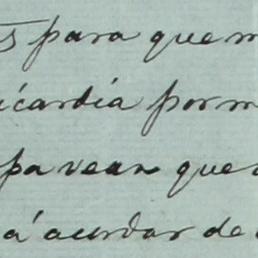 para que m
icardia por m
pa vean que
a acordar de